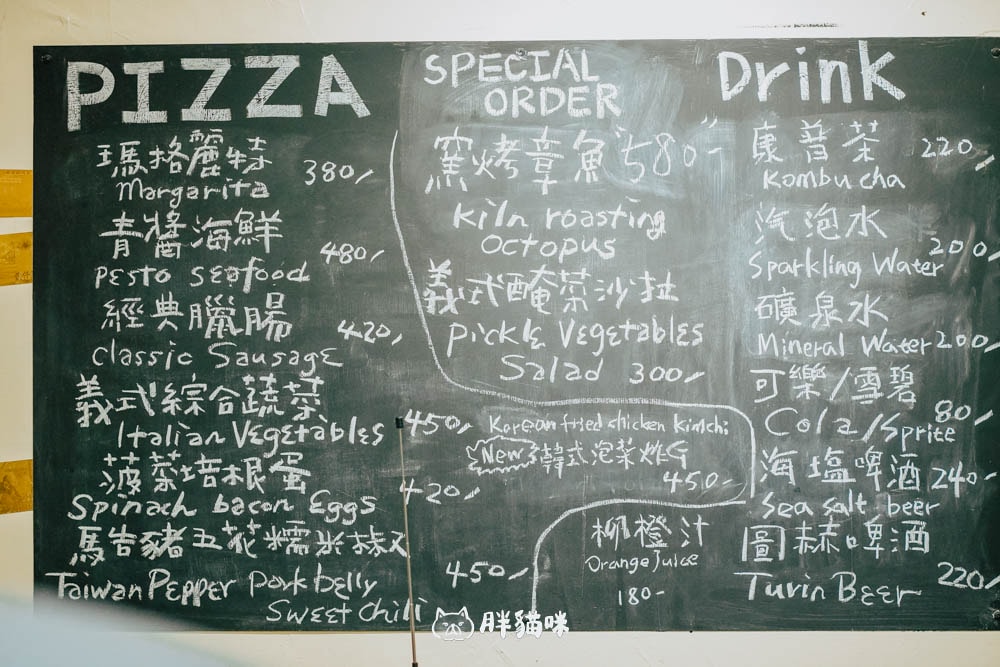 PIZZA
瑪格麗特 380/
Margarita
青醬海鮮
480/
Pesto seafood
經典臘腸
420/
Classic Sausage
義式綜合蔬菜
450/
Italian Vegetables
菠菜培根蛋
420/
Spinach bacon Eggs
馬告豬五花糯米辣椒
450/
Taiwan Pepper pork belly
Sweet chili
SPECIAL
ORDER
窯烤章魚 580/-
kiln roasting
octopus
義式醃菜沙拉
Pickle Vegetables
Salad 300/
Korean fried chicken kimchi
New 韓式泡菜炸G
450/-
柳橙汁
Orange Juice
180-
Drink
康普茶 220/
Kombucha
汽泡水
200/
Sparkling Water
礦泉水
Mineral Water 200/
可樂/雪碧
80/
Cola/Sprite
海塩啤酒 240-
Sea salt beer
圖赫啤酒
220/
Turin Beer
胖貓咪